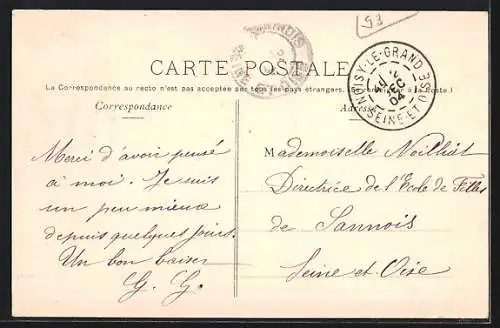 93
CARTE POSTALE
La Correspondance au recto n'est pas acceptée par tous les pays étrangers. (Se renseigner à la Poste.)
Correspondance
Adresse
NOISY-LE-GRAND
DEC
04
SEINE-ET-OISE
Merci d'avoir pensé
à moi. Je suis
un peu mieux
depuis quelques jours.
Un bon baiser
G. G.
Mademoiselle Noilhat
Directrice de l'Ecole de Filles
de Sannois
Seine et Oise